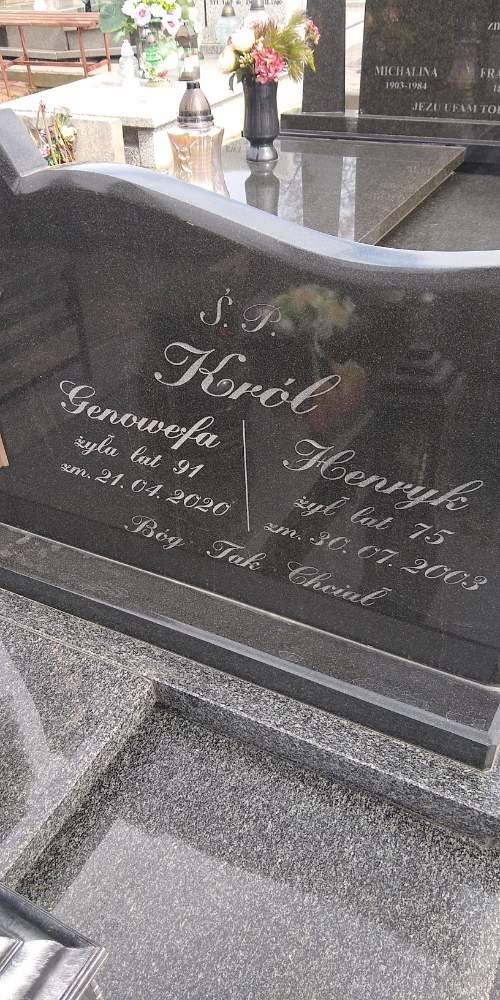 MICHALINA
1903-1984
JEZU UFAM
Ś. P.
Król
Genowefa
żyła lat 91
zm. 21.04.2020
Henryk
żył lat 75
zm. 30.07.2003
Bóg Tak Chciał